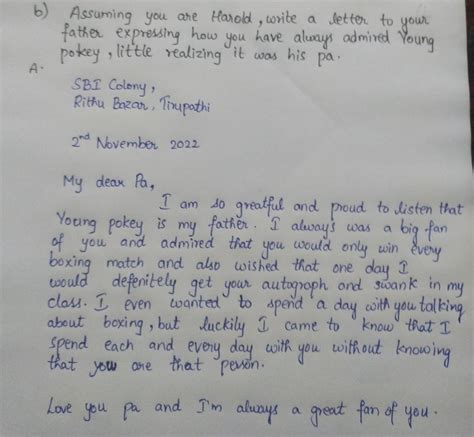 b) Assuming you are Harold, write a letter to your
father expressing how you have always admired Young
pokey, little realizing it was his pa.
A.
SBI Colony,
Rithu Bazar, Tirupathi
2nd November 2022
My dear Pa,
I am so greatful and proud to listen that
Young pokey is my father. I always was a big fan
of you and admired that you would only win every
boxing match and also wished that one day I
would defenitely get your autograph and swank in my
class. I even wanted to spend a day with you talking
about boxing, but luckily I came to know that I
spend each and every day with you without knowing
that you are that person.
Love you pa and I'm always a great fan of you.